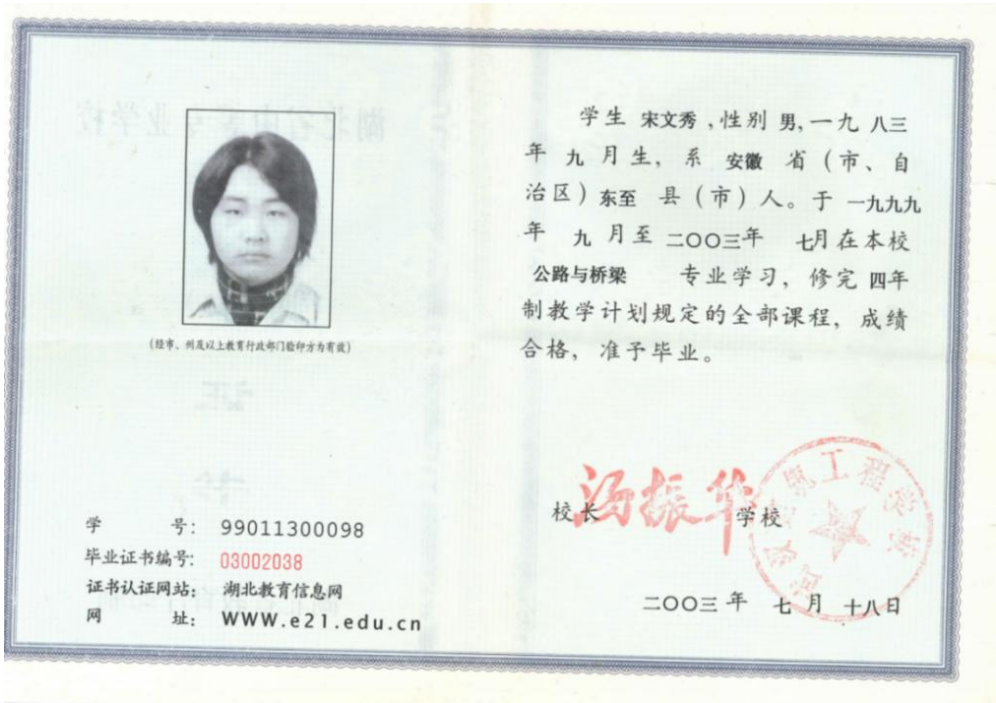 (经市、州及以上教育行政部门验印方为有效)
学 号: 99011300098
毕业证书编号: 03002038
证书认证网站: 湖北教育信息网
网 址: WWW.e21.edu.cn
学生 宋文秀,性别 男,一九 八三
年 九 月生,系 安徽 省(市、自
治区)东至 县(市)人。于 一九九九
年 九 月至 二〇〇三年 七月在本校
公路与桥梁 专业学习,修完 四年
制教学计划规定的全部课程,成绩
合格,准予毕业。
校长 汤振华 学校
工程学校
二〇〇三 年 七 月 十八日